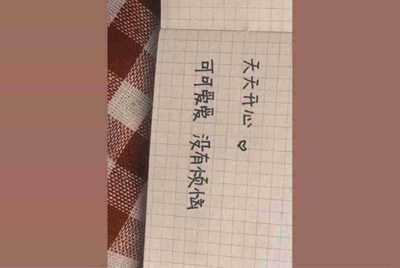 天天开心♡
可可爱爱 没有烦恼